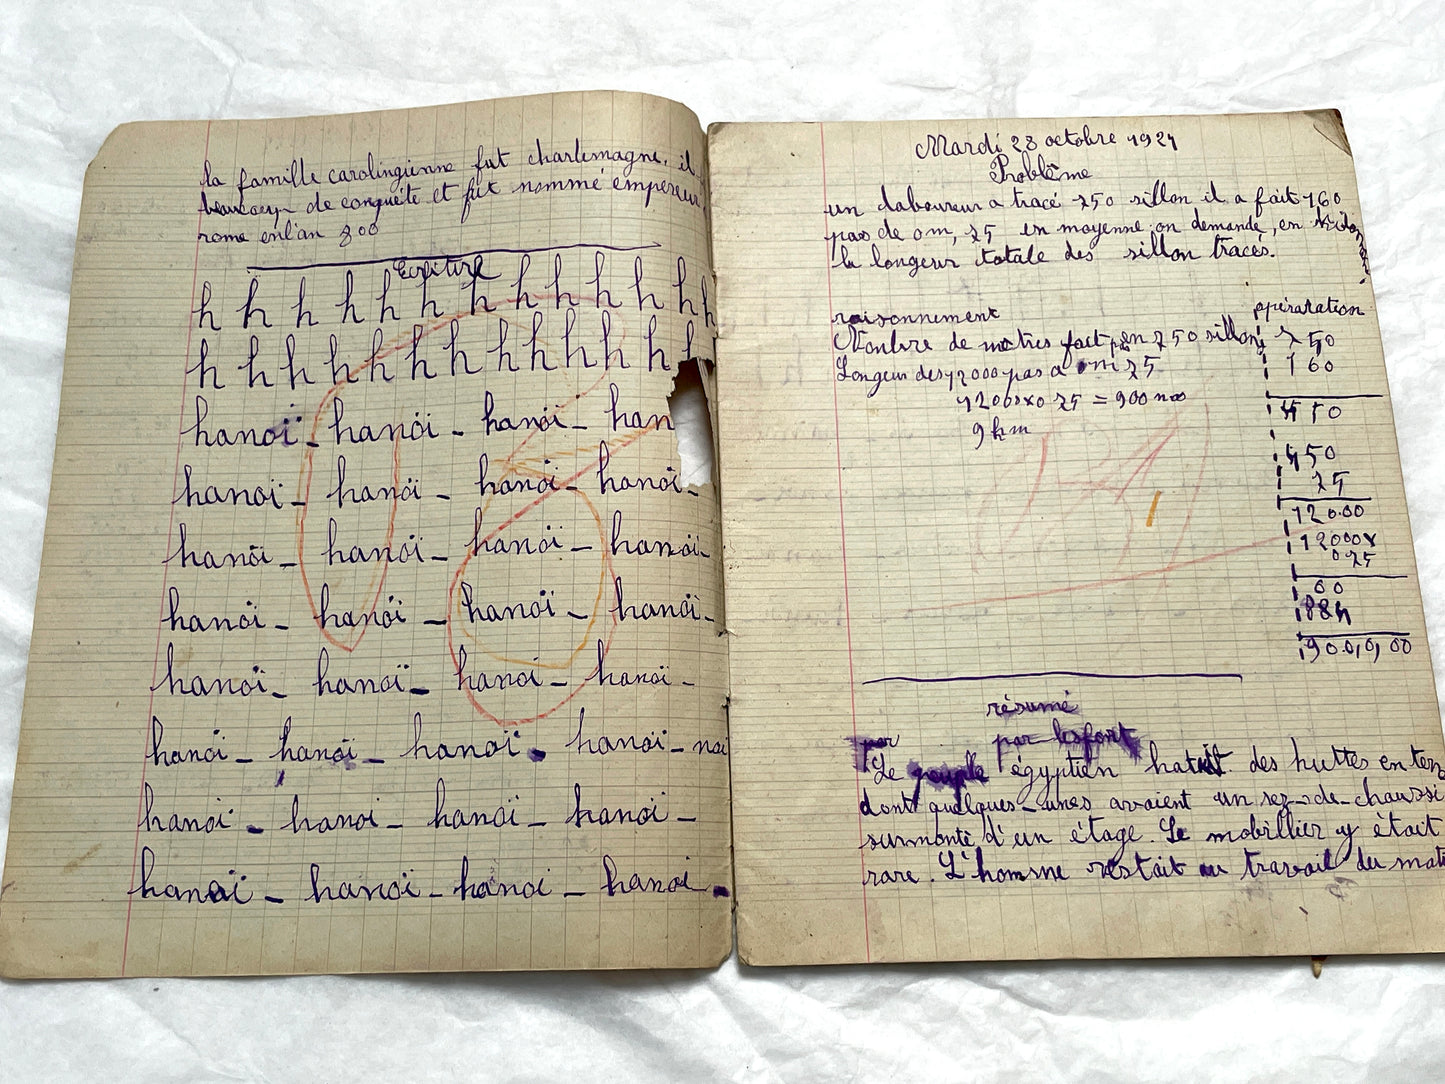 la famille carolingienne fut charlemagne. il
beaucoup de conquête et fut nommé empereur
rome enl'an 800
Ecriture
h h h h h h h h h h h h h
h h h h h h h h h h h h
hanoï - hanöi - hanoi - han
hanoï - hanoï - hanoï - hanoï -
hanoi - hanoï - hanoï - hanoï -
hanoï - hanoï - hanoï - hanoï -
hanoï - hanoï - hanoi - hanoï -
hanoï - hanoï - hanoï - hanoï - noi
hanoï - hanoi - hanoï - hanoï -
hanoï - hanoï - hanoi - hanoi -
Mardi 28 octobre 1924
Problême
un laboureur a tracé 750 sillon il a fait 160
pas de 0m,75 en moyenne on demande, en
la longeur totale des sillon tracés.
raisonnement
opératation
Nombre de mètres fait en 750 sillon
750
160
Longeur des 12000 pas a 0m 75
12000 x 0 75 = 900 m
9 km
450
75
12000
12000 x
0 75
60
84
900,0,00
résumé
par
Le peuple égyptien habitait des huttes en
dont quelques-unes avaient un rez-de-chaussi
surmonté d'un étage. Le mobillier y était
rare. L'homme restait au travail du mati